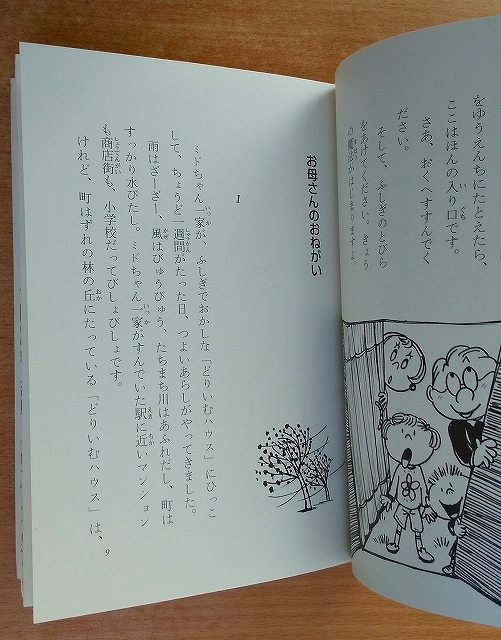 をゆうえんちにたとえたら、
ここはほんの入り口です。
さあ、おくへすすんでく
ださい。
そして、ふしぎのとびら
をあけてください。きょう
の魔法がはじまりますよ。
お母さんのおねがい
1
ミドちゃん一家が、ふしぎでおかしな「どりいむハウス」にひっこ
して、ちょうど一週間がたった日、つよいあらしがやってきました。
雨はざーざー、風はびゅうびゅう、たちまち川はあふれだし、町は
すっかり水びたし。ミドちゃん一家がすんでいた駅に近いマンション
も商店街も、小学校だってびしょびしょです。
けれど、町はずれの林の丘にたっている「どりいむハウス」は、
9